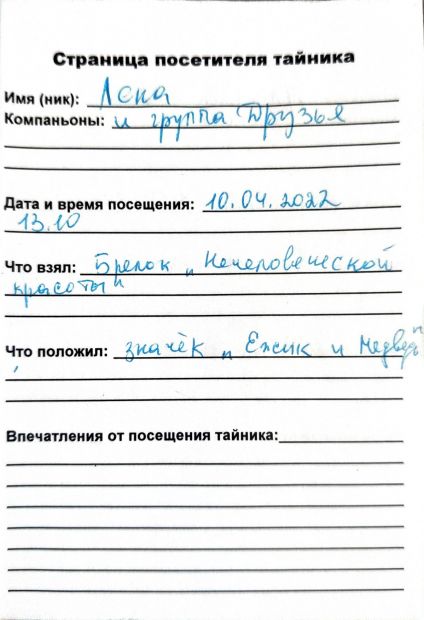 Страница посетителя тайника
Имя (ник): Лена
Компаньоны: и группа Друзья
Дата и время посещения: 10.04.2022
13.10
Что взял: Брелок „Нечеловеческой
красоты"
Что положил: значёк „Ёжик и Медведь"
Впечатления от посещения тайника: